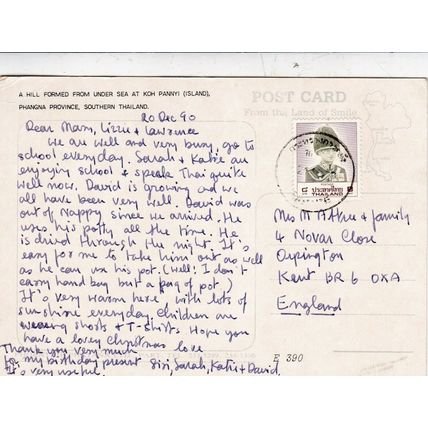 A HILL FORMED FROM UNDER SEA AT KOH PANNYI (ISLAND),
PHANGNA PROVINCE, SOUTHERN THAILAND.
POST CARD
From the Land of Smile
20 Dec 90
Dear Mam, Lizzie & Lawrence
We are well and very busy, go to
school everyday. Sarah & Katie are
enjoying school & speak Thai quite
well now. David is growing and we
all have been very well. David was
out of Nappy since we arrived. He
uses his potty all the time. He
is dried through the night. It's
easy for me to take him out as well
as he can use his pot. (Well! I don't
carry hand bag but a bag of pot.)
It's very warm here, with lots of
sunshine everyday. Children are
wearing shorts & T-Shirts Hope you
have a lovey Christmas love
Thank you very much
for my birthday present Siri, Sarah, Katie & David.
It's very useful.
๘ ประเทศไทย ๘
THAILAND
Mrs M & family
4 Novar Close
Orpington
Kent BR6 0XA
England
E 390